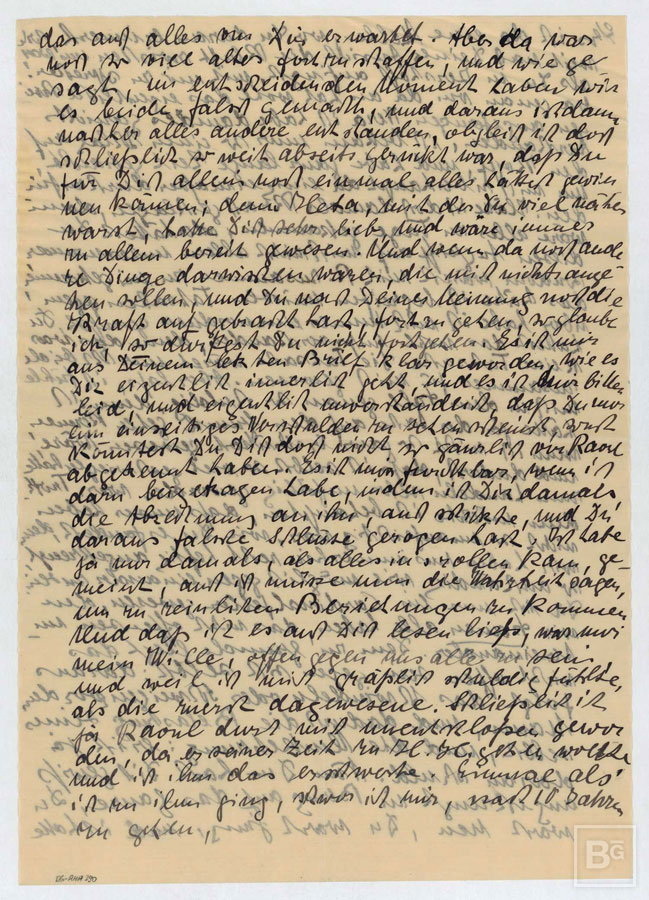 das auch alles von Dir erwartet. Aber da war
noch so viel altes fortzuschaffen, und wie ge
sagt, im entscheidenden Moment haben wir
es beide falsch gemacht, und daraus ist dann
nachher alles andere entstanden, obgleich ich doch
schließlich so weit abseits gerückt war, daß Du
für Dich allein noch einmal alles hättest gewin
nen können; denn Heta, mit der Du viel näher
warst, hatte Dich sehr lieb, und wäre immer
zu allem bereit gewesen. Und wenn da noch ande
re Dinge dazwischen waren, die mich nichts ange-
hen sollen, und Du nach Deiner Meinung noch die
Kraft aufgebracht hast, fortzugehen, so glaube
ich, so durftest Du nicht fortgehen. Es ist mir
aus Deinem letzten Brief klar geworden, wie es
Dir eigentlich innerlich geht, und es ist bitter
leid, und eigentlich unverständlich, daß Du nur
ein einseitiges Verschulden zu sehen scheinst, sonst
könntest Du Dich doch nicht so gänzlich von Raoul
abgetrennt haben. Es ist mir furchtbar, wenn ich
dazu beigetragen habe, indem ich Dir damals
die Abrechnung an ihn, auch schickte, und Du
daraus falsche Schlüsse gezogen hast. Ich habe
ja nur damals, als alles ins rollen kam, ge-
meint, auch ich müsse nun die Wahrheit sagen,
um zu reinlichen Beziehungen zu kommen
Und daß ich es auch Dich lesen ließ, war nur
mein Wille, offen gegen uns alle zu sein
und weil ich mich gräßlich schuldig fühlte,
als die zuerst dagewesene. Schließlich ist
ja Raoul durch mich unentschloßen gewor
den, da er seiner Zeit zu H. H. gehen wollte
und ich ihm das erschwerte. Einmal als
ich zu ihm ging, schwor ich mir, nach 10 Jahren
zu gehen,
BG-RHA 290
BG